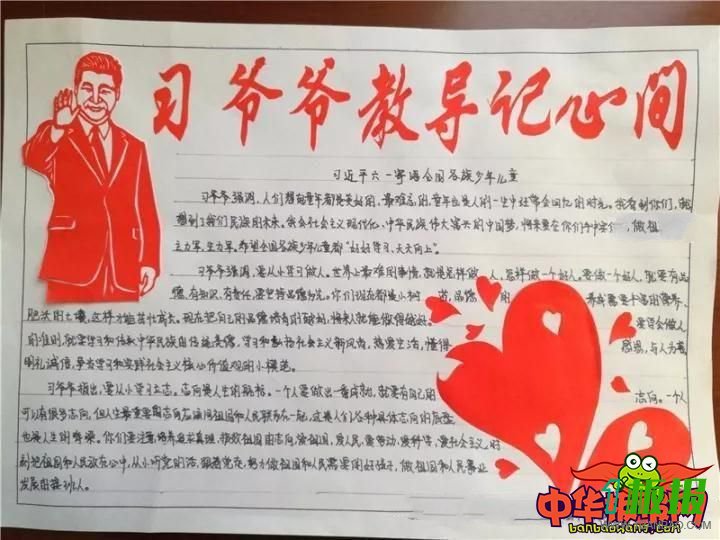 习爷爷教导记心间
习近平六一寄语全国各族少年儿童
习爷爷强调,人们想起童年都是美好的、最难忘的,童年也是人的一生中经常会回忆的时光。我看到你们,就
想到了我们民族的未来。我会社会主义现代化,中华民族伟大富兴的中国梦,将来要在你们手中实 做祖
主力军、生力军,希望全国各族少年儿童都“好好学习、天天向上”。
习爷爷强调,要从小学习做人。世界上最难的事情,就是怎样做 人、怎样做一个好人。要做一个好人,就要有品
德、有知识、有责任,要坚持品德为先。你们现在都是小树 苗,品德 的 养成需要丰富的营养、
肥沃的土壤,这样才能茁壮成长。现在把自己的品德培育得越好,将来人就能做得越好。 要学会做人
的准则,就要学习和传承中华民族传统美德,学习和弘扬社会主义新风尚,热爱生活,懂得 感恩,与人为善,
明礼诚信,争当学习和实践社会主义核心价值观的小模范。
习爷爷指出,要从小学习立志。志向是人生的航标。一个人要做出一番成就,就要有自己的 志向。一个人
可以有很多志向,但人生最重要的志向应该同祖国和人民联系在一起,这是人们各种具体志向的底盘,
也是人生的脊梁。你们要注意培养追求真理、报效祖国的志向,爱祖国、爱人民、爱劳动、爱科学、爱社会主义,时
刻把祖国和人民放在心中,从小听党的话、跟着党走,努力做祖国和人民需要的好孩子,做祖国和人民事业
发展的接班人。
中华 板报网
banbaowang.com